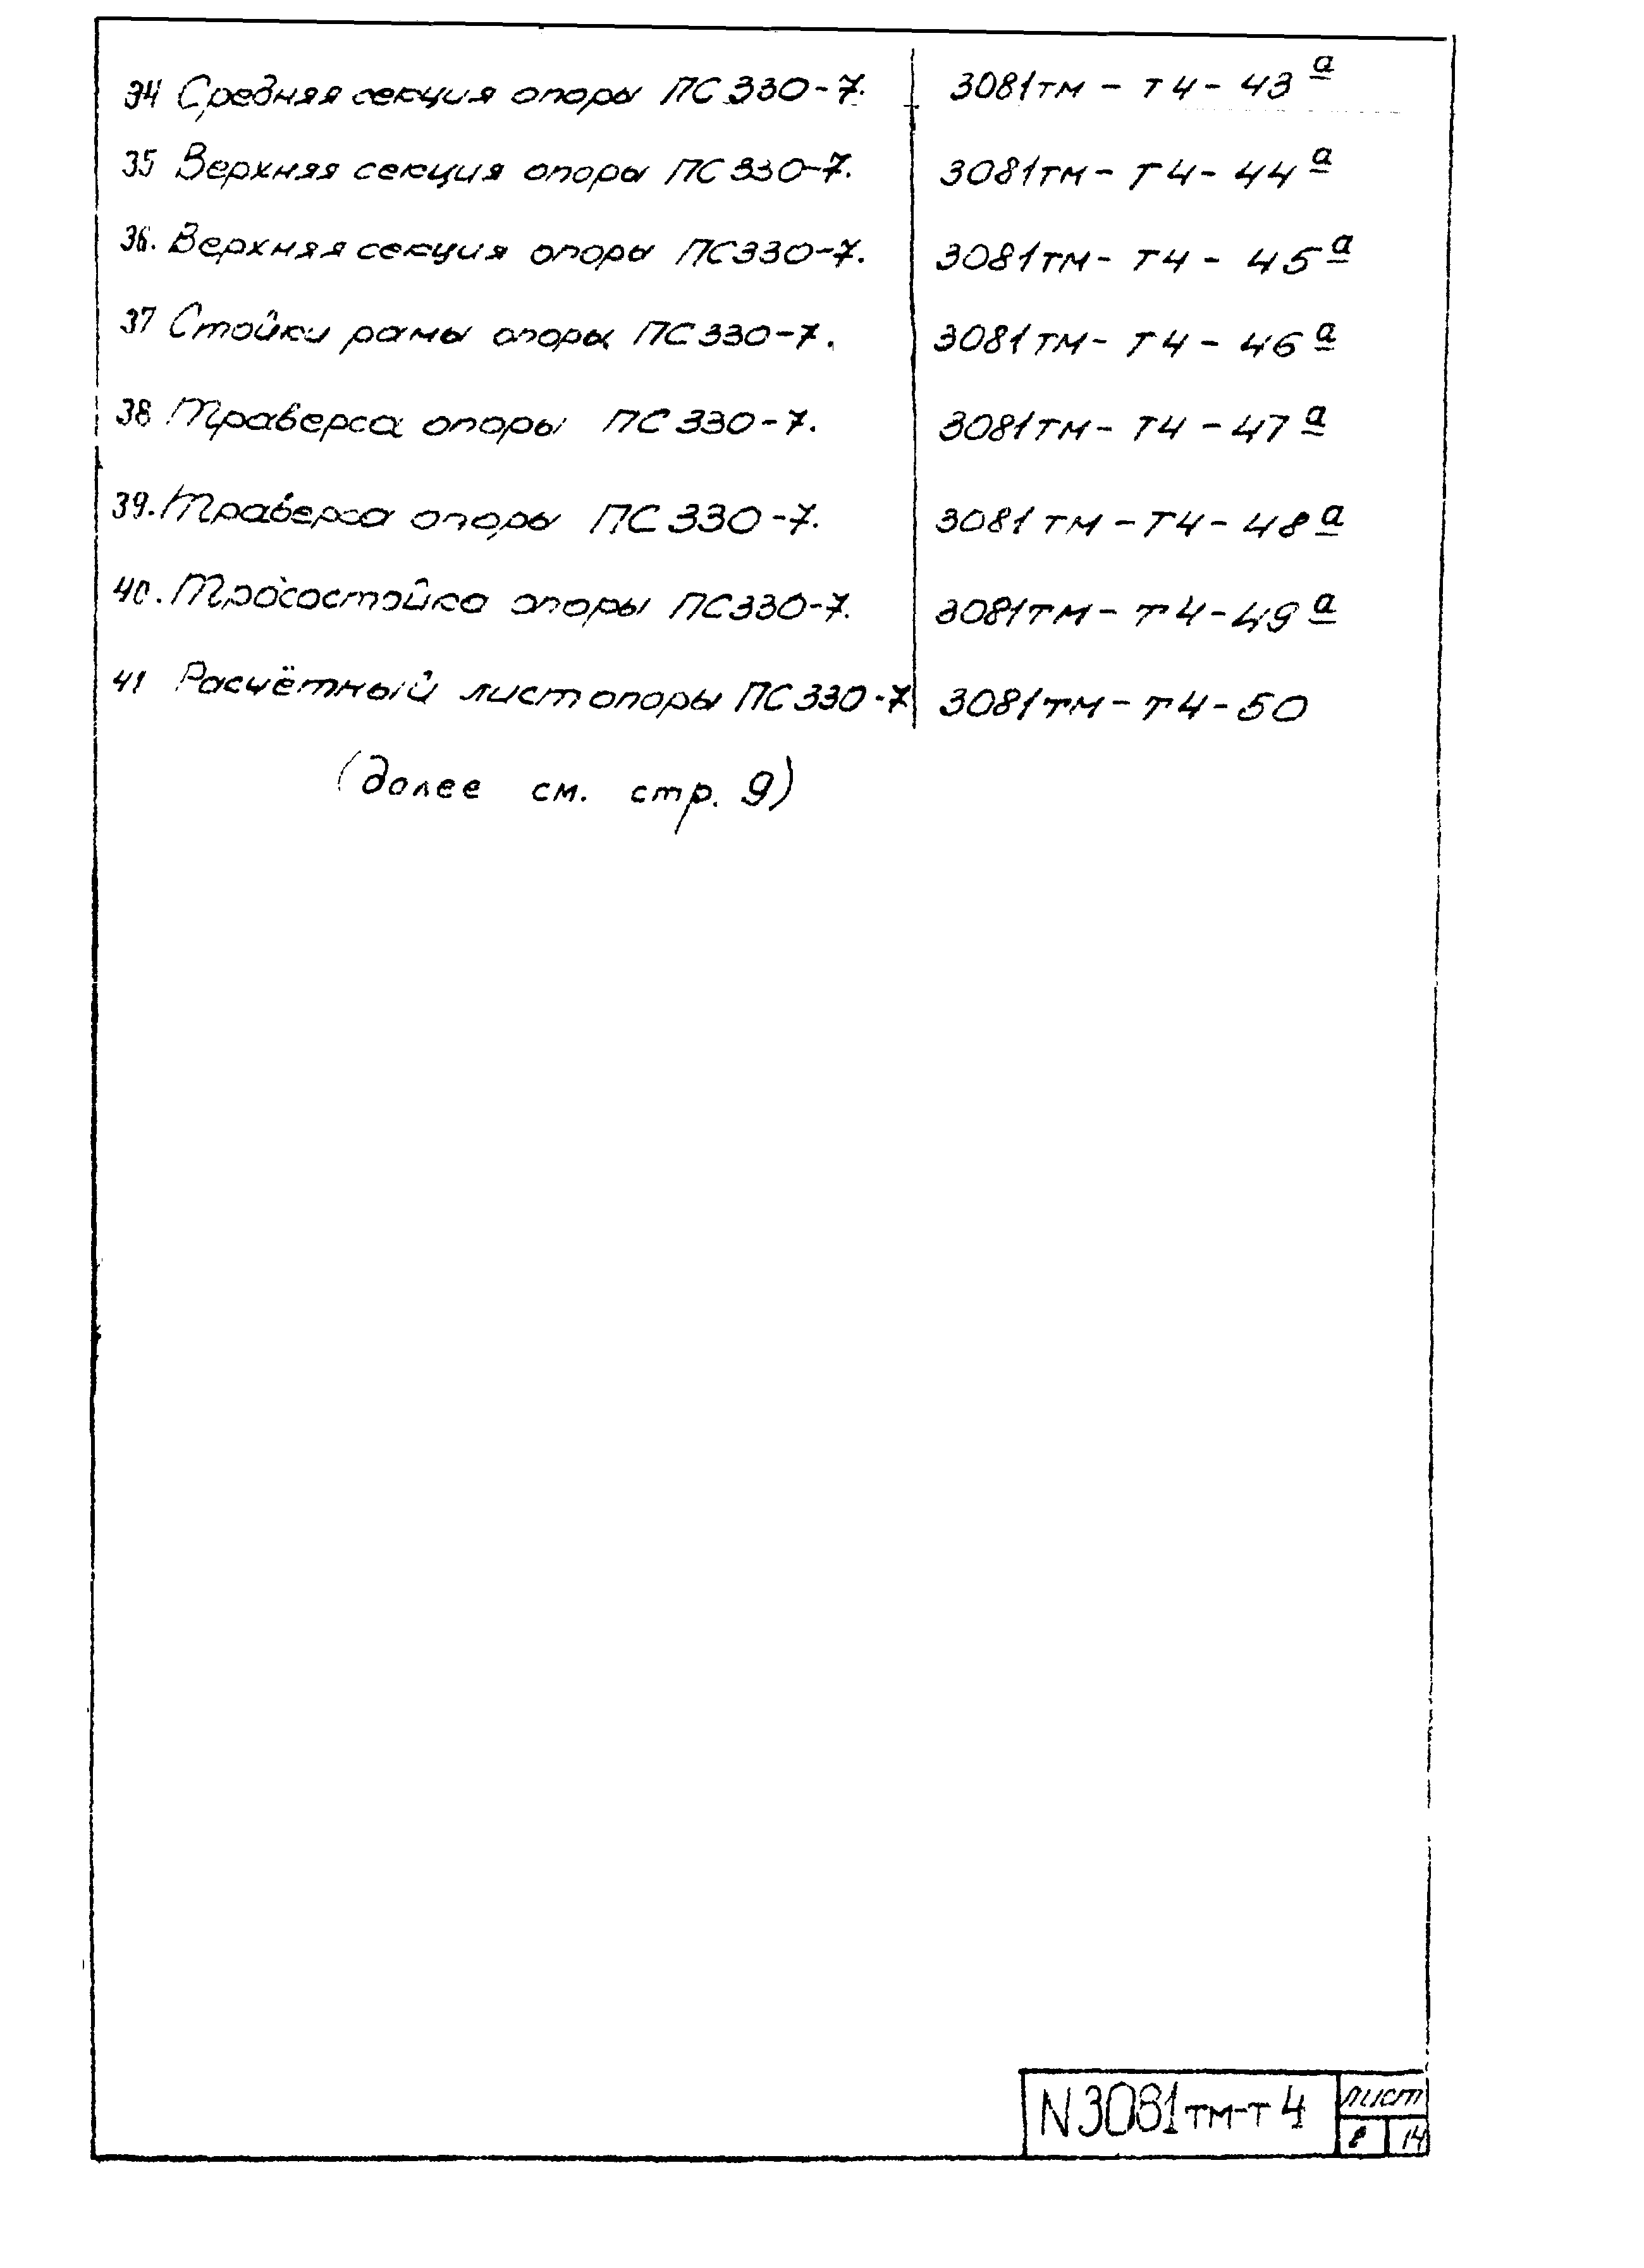 34 Средняя секция опоры ПС 330-7. 3081тм - Т4 - 43ª
35 Верхняя секция опоры ПС 330-7. 3081тм - Т4 - 44ª
36. Верхняя секция опоры ПС330-7. 3081тм - Т4 - 45ª
37 Стойки рамы опоры ПС330-7. 3081тм - Т4 - 46ª
38 Траверса опоры ПС 330-7. 3081тм - Т4 - 47ª
39. Траверса опоры ПС 330-7. 3081тм - Т4 - 48ª
40. Тросостойка опоры ПС330-7. 3081тм - Т4 - 49ª
41 Расчётный лист опоры ПС 330-7 3081тм - Т4 - 50
(далее см. стр. 9)
N3081тм-т4
лист
8 14